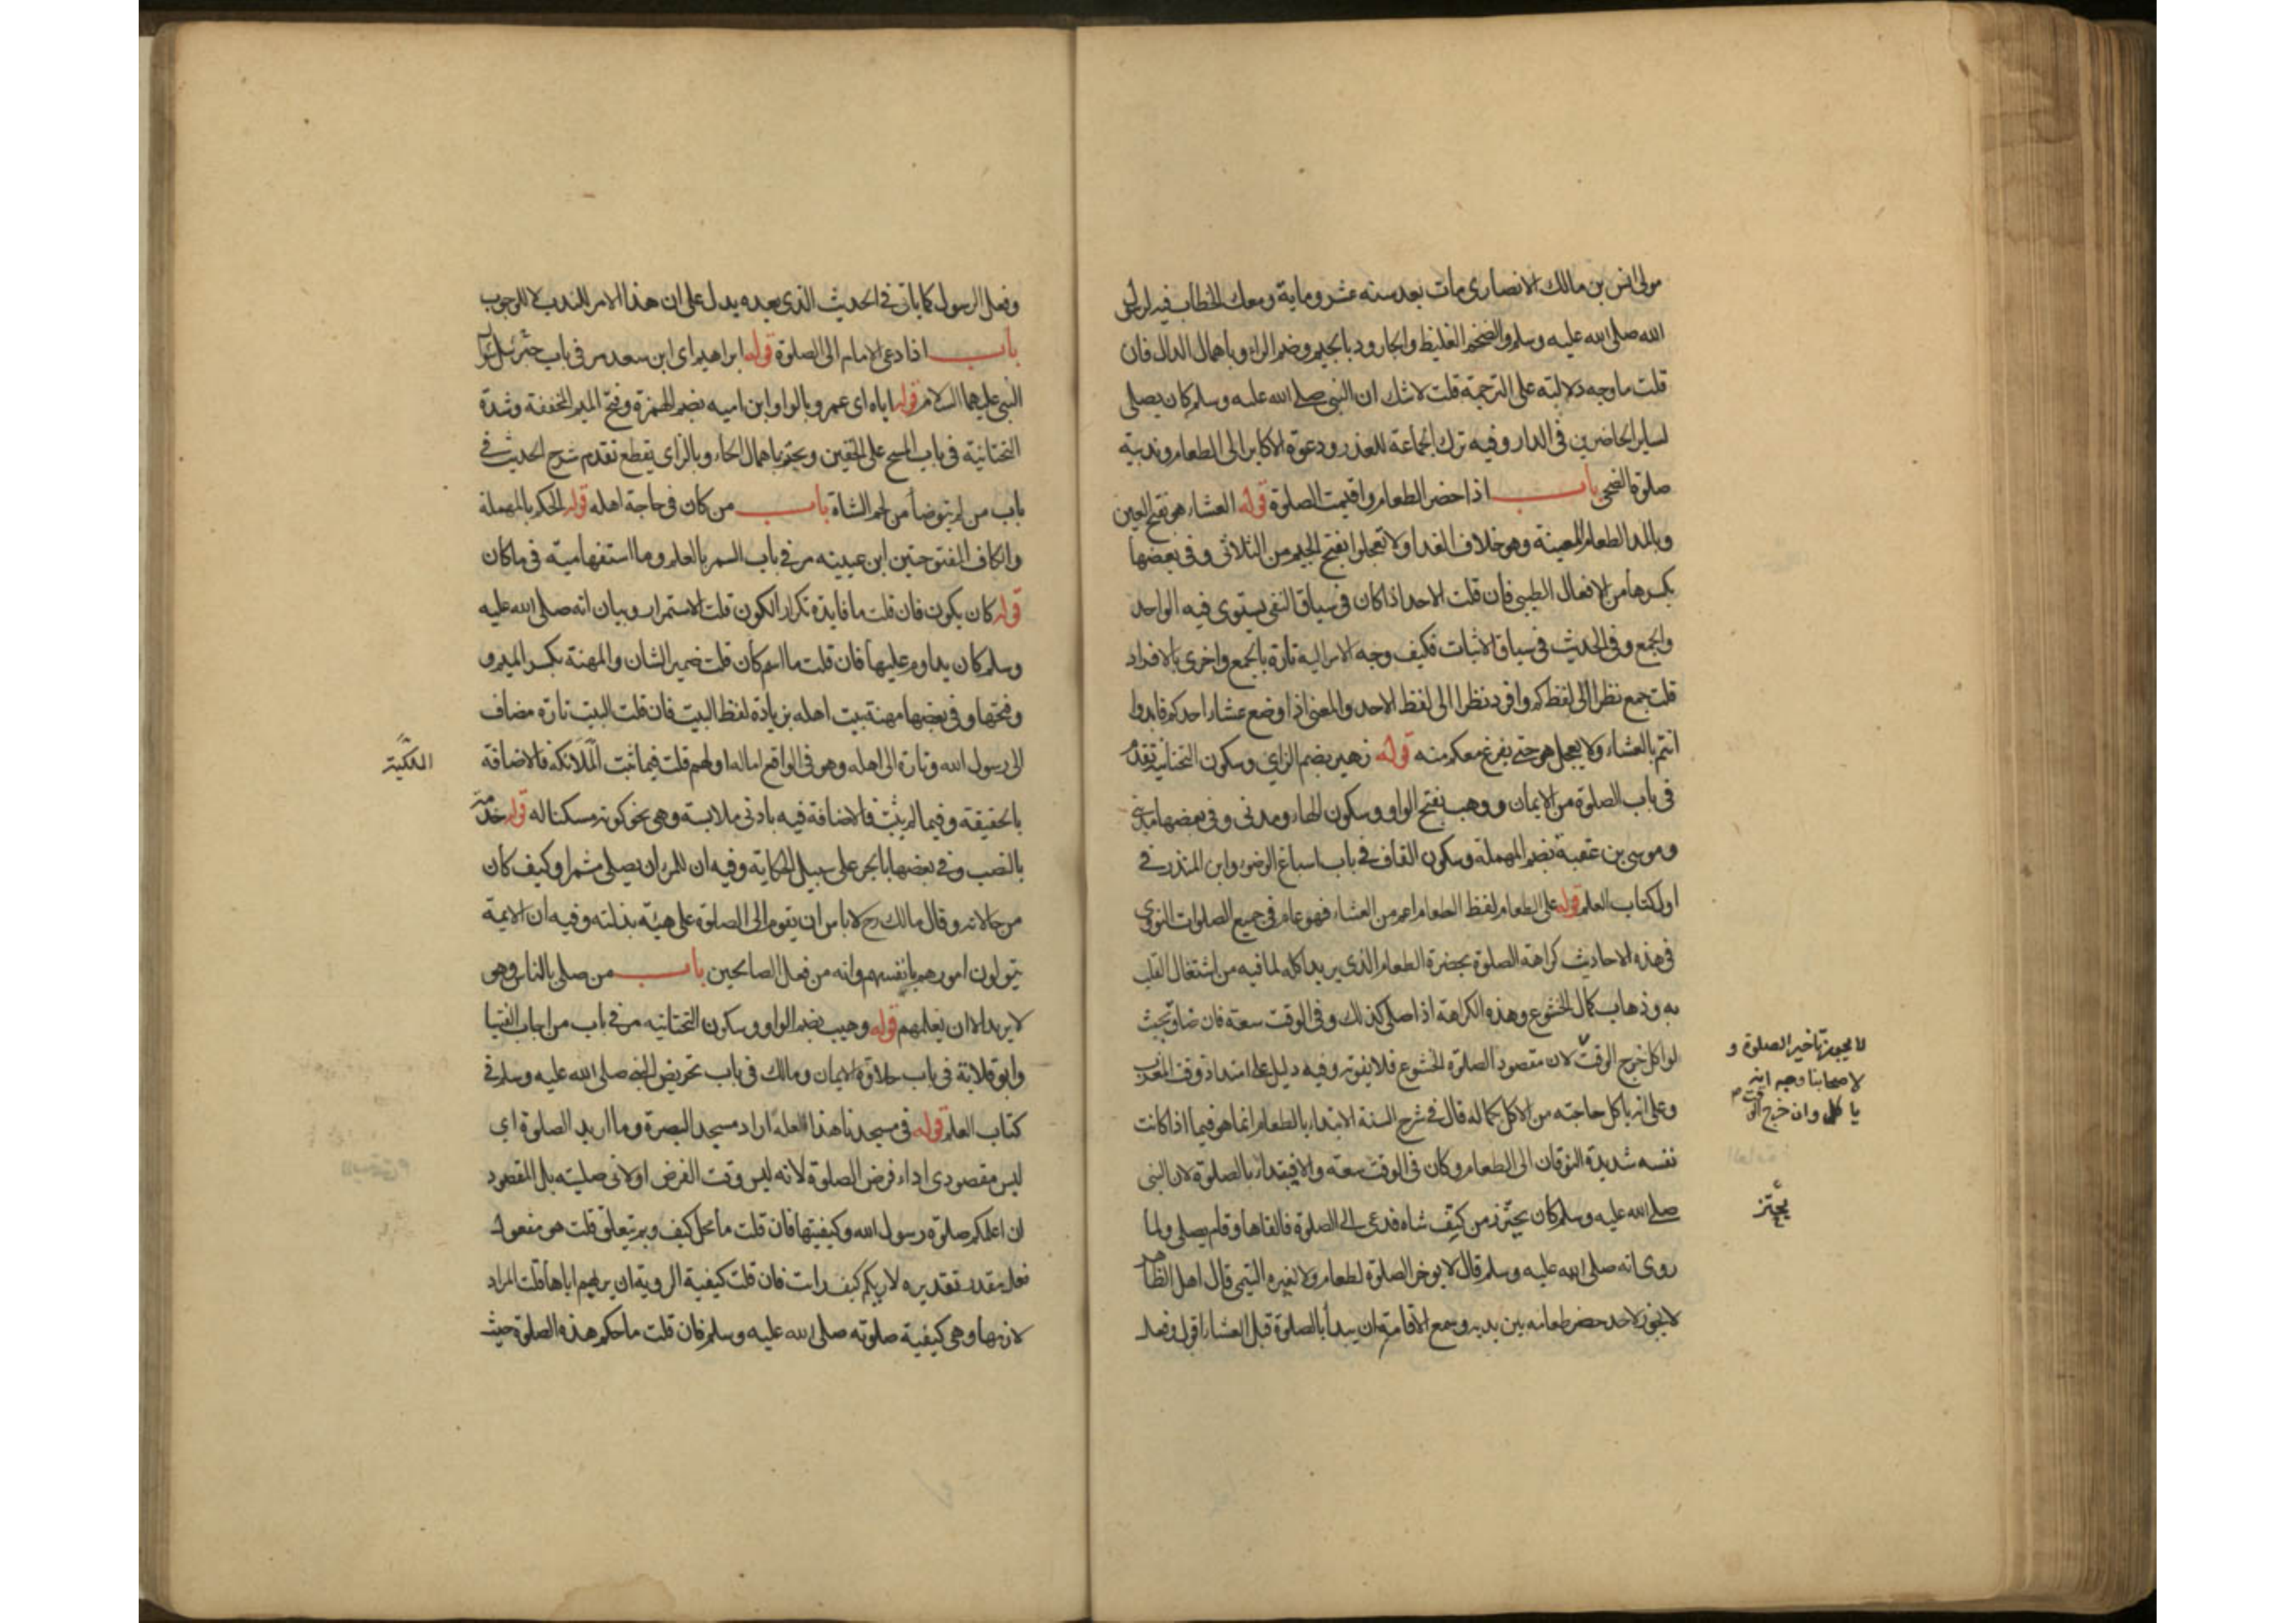 مولى انس بن مالك الانصارى مات بعد سنه عشر وماية ومعك الخطاب فيه لرسول
الله صلى الله عليه وسلم والضخم الغليظ والجارود بالجيم وضم الراء وباهمال الدال فان
قلت ما وجه دلالته على الترجمة قلت لا شك ان النبى صلى الله عليه وسلم كان يصلى
لساير الحاضرين فى الدار وفيه ترك الجماعة للعذر ودعوة الاكابر الى الطعام وندبية
صلوة الضحى باب اذا حضر الطعام واقيمت الصلوة قوله العشاء هو بفتح العين
وبالمد الطعام المعينة وهو خلاف الغداء ولا تعجلوا بفتح الجيم من الثلاثى وفى بعضها
بكسرها من الافعال الطيبى فان قلت الاحد اذا كان فى سياق النفى يستوى فيه الواحد
والجمع وفى الحديث فى سياق الاثبات فكيف وجه الامر اليه تارة بالجمع واخرى بالافراد
قلت جمع نظرا الى لفظ كم وافرد نظرا الى لفظ الاحد والمعنى اذا وضع عشاء احدكم فابدوا
انتم بالعشاء ولا يعجل هو حتى يفرغ معكم منه قوله زهير بضم الزاى وسكون التحتانية تقدم
فى باب الصلوة من الايمان ووهب بفتح الواو وسكون الهاء ومدنى وفى بعضها مدينى
وموسى بن عقبة بضم المهملة وسكون القاف فى باب اسباغ الوضوء وابن المنذر فى
اول كتاب العلم قوله على الطعام لفظ الطعام اعم من العشاء فهو عام فى جميع الصلوات النووى
فى هذه الاحاديث كراهة الصلوة بحضرة الطعام الذى يريد اكله لما فيه من اشتغال القلب
به وذهاب كمال الخشوع وهذه الكراهة اذا صلى كذلك وفى الوقت سعة فان ضاق بحيث
لو اكل خرج الوقت لان مقصود الصلوة الخشوع فلا يفوته وفيه دليل على امتداد وقت المغرب
لا يجوز تاخير الصلوة و
لاصحابنا وجه انه
ياكل وان خرج الوقت
وعلى انه ياكل حاجته من الاكل بكماله قال فى شرح السنة الابتداء بالطعام انما هو فيما اذا كانت
نفسه شديدة التوقان الى الطعام وكان فى الوقت سعة والا فيبتدا بالصلوة لان النبى
صلى الله عليه وسلم كان يحتز من كتف شاه فدعى الى الصلوة فالقاها وقام يصلى ولما
يحتز
روى انه صلى الله عليه وسلم قال لا يوخر الصلوة لطعام ولا لغيره التيمى قال اهل الظاهر
لا يجوز لاحد حضر طعامه بين يديه وسمع الاقامة ان يبدأ بالصلوة قبل العشاء اقول وفعل
وفعل الرسول كما ياتى فى الحديث الذى بعده يدل على ان هذا الامر للندب لا للوجوب
باب اذا دعى الامام الى الصلوة قوله ابراهيم اى ابن سعد مر فى باب
النبى عليهما السلام قوله اباه اى عمرو بالواو ابن اميه بضم الهمزة وفتح الميم الخففة وشدة
التحتانية فى باب المسح على الخفين ويحتز باهمال الحاء وبالزاى يقطع تقدم شرح الحديث فى
باب من لم يتوضأ من لحم الشاة باب من كان فى حاجة اهله قوله الحكم بالمهملة
والكاف المفتوحتين ابن عيينه مر فى باب السمر بالعلم وما استفهامية فى ما كان
قوله كان يكون فان قلت ما فايدة تكرار الكون قلت الاستمرار وبيان انه صلى الله عليه
وسلم كان يداوم عليها فان قلت ما اسم كان قلت ضمير الشان والمهنة بكسر الميم و
وفتحها وفى بعضها مهنة بيت اهله بزيادة لفظ البيت فان قلت البيت تارة مضاف
الى رسول الله وتارة الى اهله وهو فى الواقع اما له او لهم قلت فيما ثبت الملائكة فالاضافة
الملكية
بالحقيقة وفيما لم يثبت فالاضافة فيه بادنى ملابسة وهى نحو كونه مسكنا له قوله خدمة
بالنصب وفى بعضها بالجر على سبيل الحكاية وفيه ان للمرء ان يصلى مشمرا وكيف كان
من حالاته وقال مالك رح لا باس ان يقوم الى الصلوة على هيئة بذلته وفيه ان الايمة
يتولون امورهم بانفسهم وانه من فعل الصالحين باب من صلى بالناس وهو
لا يريد الا ان يعلمهم قوله وهيب بضم الواو وسكون التحتانيه مر فى باب من اجاب الفتيا
وابو قلابة فى باب حلاوة الايمان ومالك فى باب تحريض النبى صلى الله عليه وسلم فى
كتاب العلم قوله فى مسجدنا هذا لعله اراد مسجد البصرة وما اريد الصلوة اى
ليس مقصودى اداء فرض الصلوة لانه ليس وقت الفرض او لانى صليته بل المقصود
ان اعلمكم صلوة رسول الله وكيفيتها فان قلت ما محل كيف وبم يتعلق قلت هو مفعول
فعل مقدر تقديره لاريكم كيف رايت فان قلت كيفية الروية ان يريهم اياها قلت المراد
لازمها وهى كيفية صلوته صلى الله عليه وسلم فان قلت ما حكم هذه الصلوة حيث